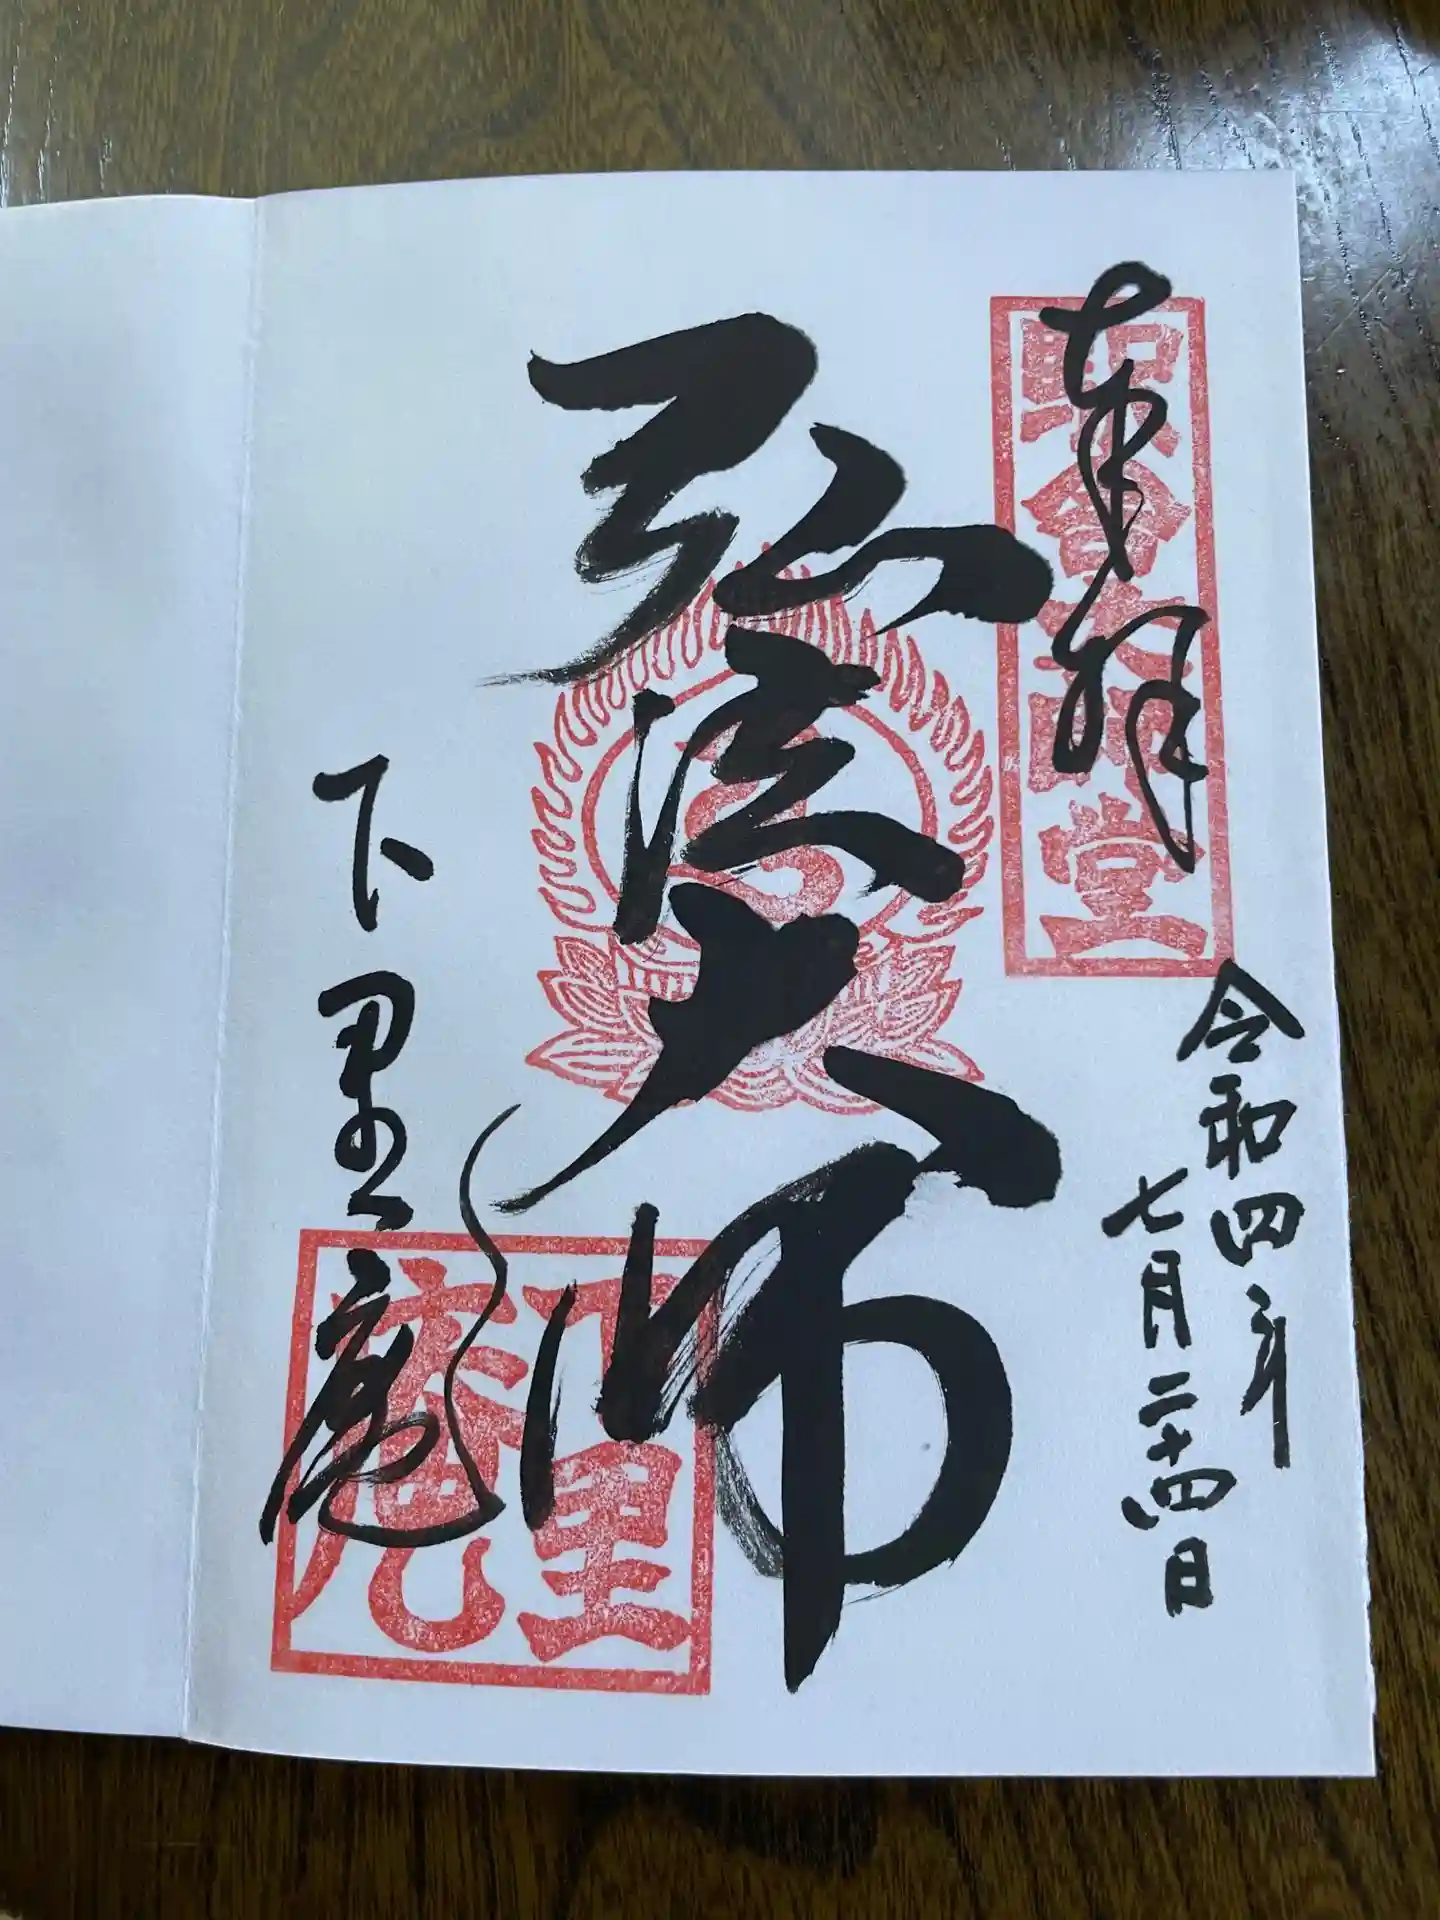 奉拝
駅舎大師堂
令和四年
七月二十四日
弘法大師
下里庵
下里
庵